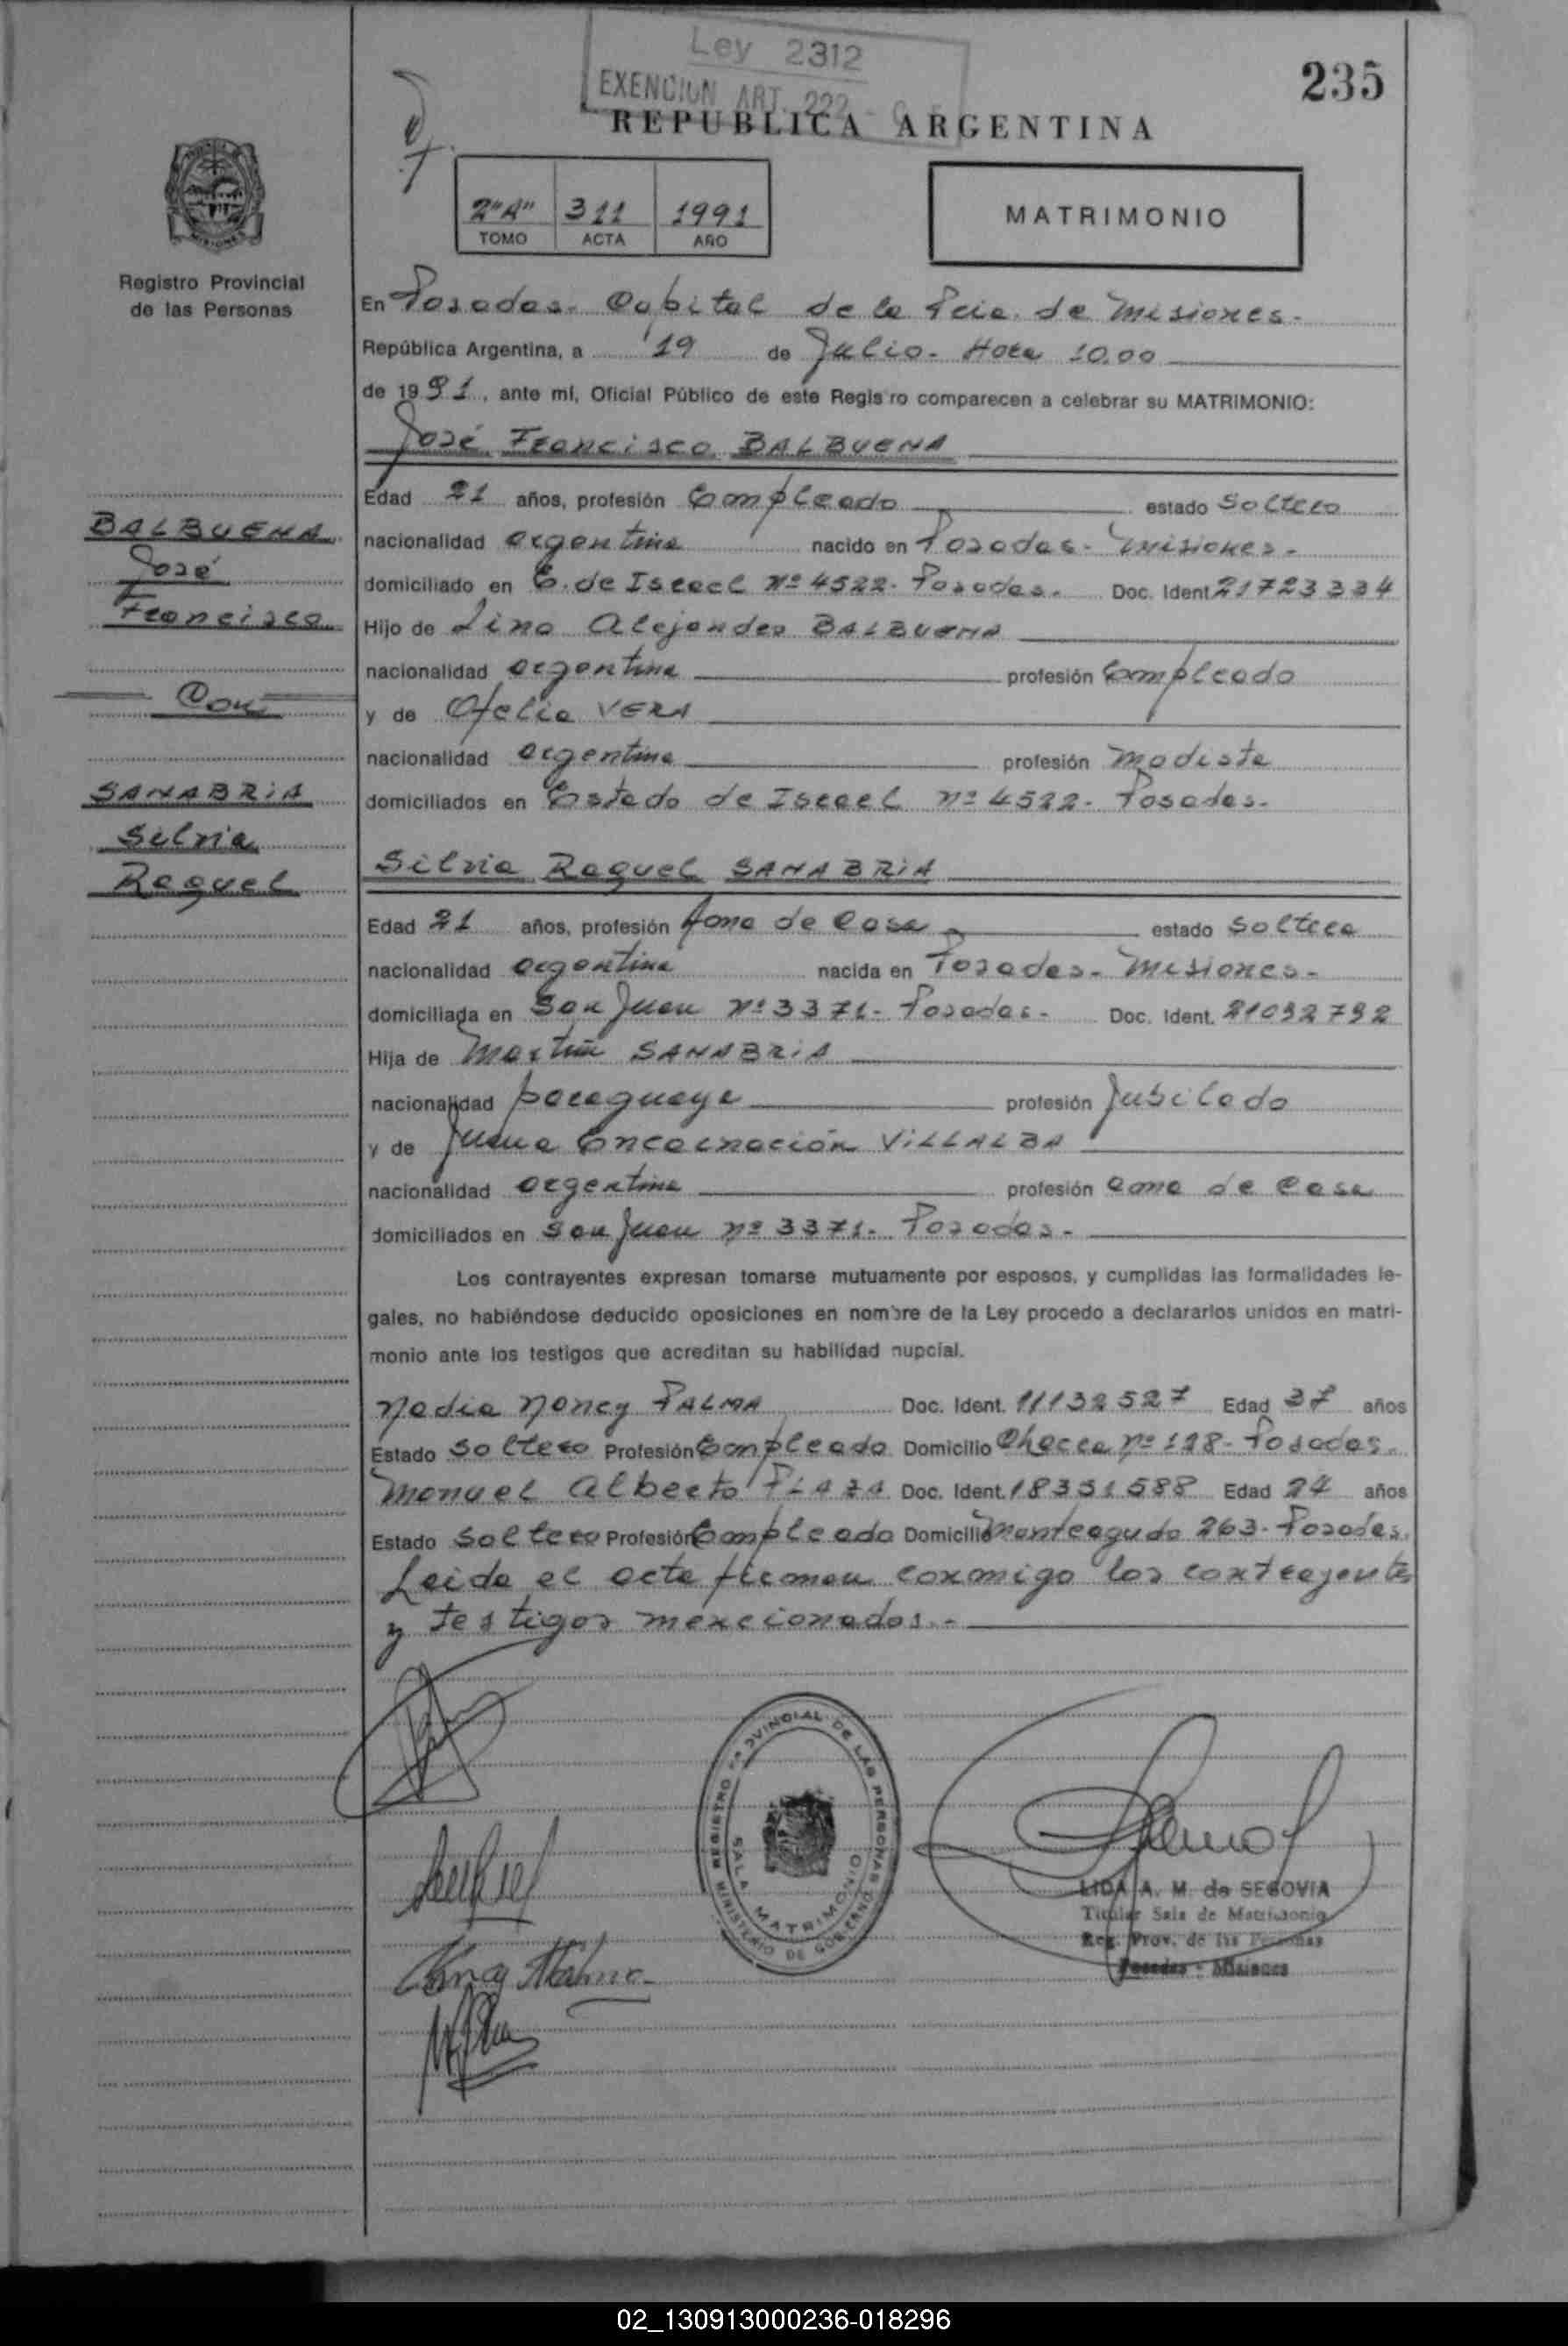 Ley 2312
EXENCION ART. 222
235
REPUBLICA ARGENTINA
2"A" 311 1991
TOMO ACTA AÑO
MATRIMONIO
Registro Provincial
de las Personas
En Posadas- Capital de la Pcia. de Misiones-
República Argentina, a 19 de Julio- Hora 10.00
de 1991, ante mí, Oficial Público de este Registro comparecen a celebrar su MATRIMONIO:
José Francisco BALBUENA
Edad 21 años, profesión Empleado estado Soltero
BALBUENA
José
Francisco
Con
SANABRIA
Silvia
Raquel
nacionalidad argentina nacido en Posadas- Misiones-
domiciliado en E. de Israel Nº 4522- Posadas- Doc. Ident 21723334
Hijo de Lino Alejandro BALBUENA
nacionalidad argentina profesión Empleado
y de Ofelia VERA
nacionalidad argentina profesión Modista
domiciliados en Estado de Israel Nº 4522- Posadas-
Silvia Raquel SANABRIA
Edad 21 años, profesión Ama de Casa estado Soltera
nacionalidad argentina nacida en Posadas- Misiones-
domiciliada en San Juan Nº 3371- Posadas- Doc. Ident. 21032792
Hija de Martín SANABRIA
nacionalidad paraguaya profesión Jubilado
y de Juana Encarnación VILLALBA
nacionalidad argentina profesión ama de casa
domiciliados en San Juan Nº 3371- Posadas-
Los contrayentes expresan tomarse mutuamente por esposos, y cumplidas las formalidades le-
gales, no habiéndose deducido oposiciones en nombre de la Ley procedo a declararlos unidos en matri-
monio ante los testigos que acreditan su habilidad nupcial.
Nadia Nancy PALMA Doc. Ident. 11132527 Edad 37 años
Estado Soltero Profesión Empleada Domicilio Chacra Nº 128- Posadas-
Manuel Alberto PLAZA Doc. Ident. 18351588 Edad 24 años
Estado Soltero Profesión Empleado Domicilio Monteagudo 263- Posadas.
Leida el acta firman conmigo los contrayentes
y testigos mencionados.-
REGISTRO PROVINCIAL DE LAS PERSONAS
SALA MATRIMONIO
MINISTERIO DE GOBIERNO
LIDA A. M. de SEGOVIA
Titular Sala de Matrimonio
Reg. Prov. de las Personas
Posadas - Misiones
02_130913000236-018296